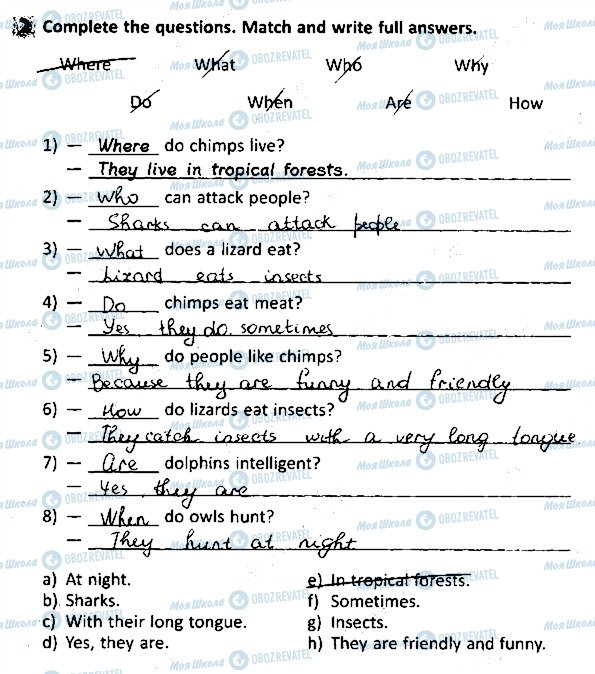 2 Complete the questions. Match and write full answers.
Where What Who Why
Do When Are How
1) — Where do chimps live?
— They live in tropical forests.
2) — Who can attack people?
— Sharks can attack people
3) — What does a lizard eat?
— Lizard eats insects
4) — Do chimps eat meat?
— Yes, they do sometimes
5) — Why do people like chimps?
— Because they are funny and friendly
6) — How do lizards eat insects?
— They catch insects with a very long tongue
7) — Are dolphins intelligent?
— Yes, they are
8) — When do owls hunt?
— They hunt at night
a) At night. e) In tropical forests.
b) Sharks. f) Sometimes.
c) With their long tongue. g) Insects.
d) Yes, they are. h) They are friendly and funny.
Моя Школа OBOZREVATEL